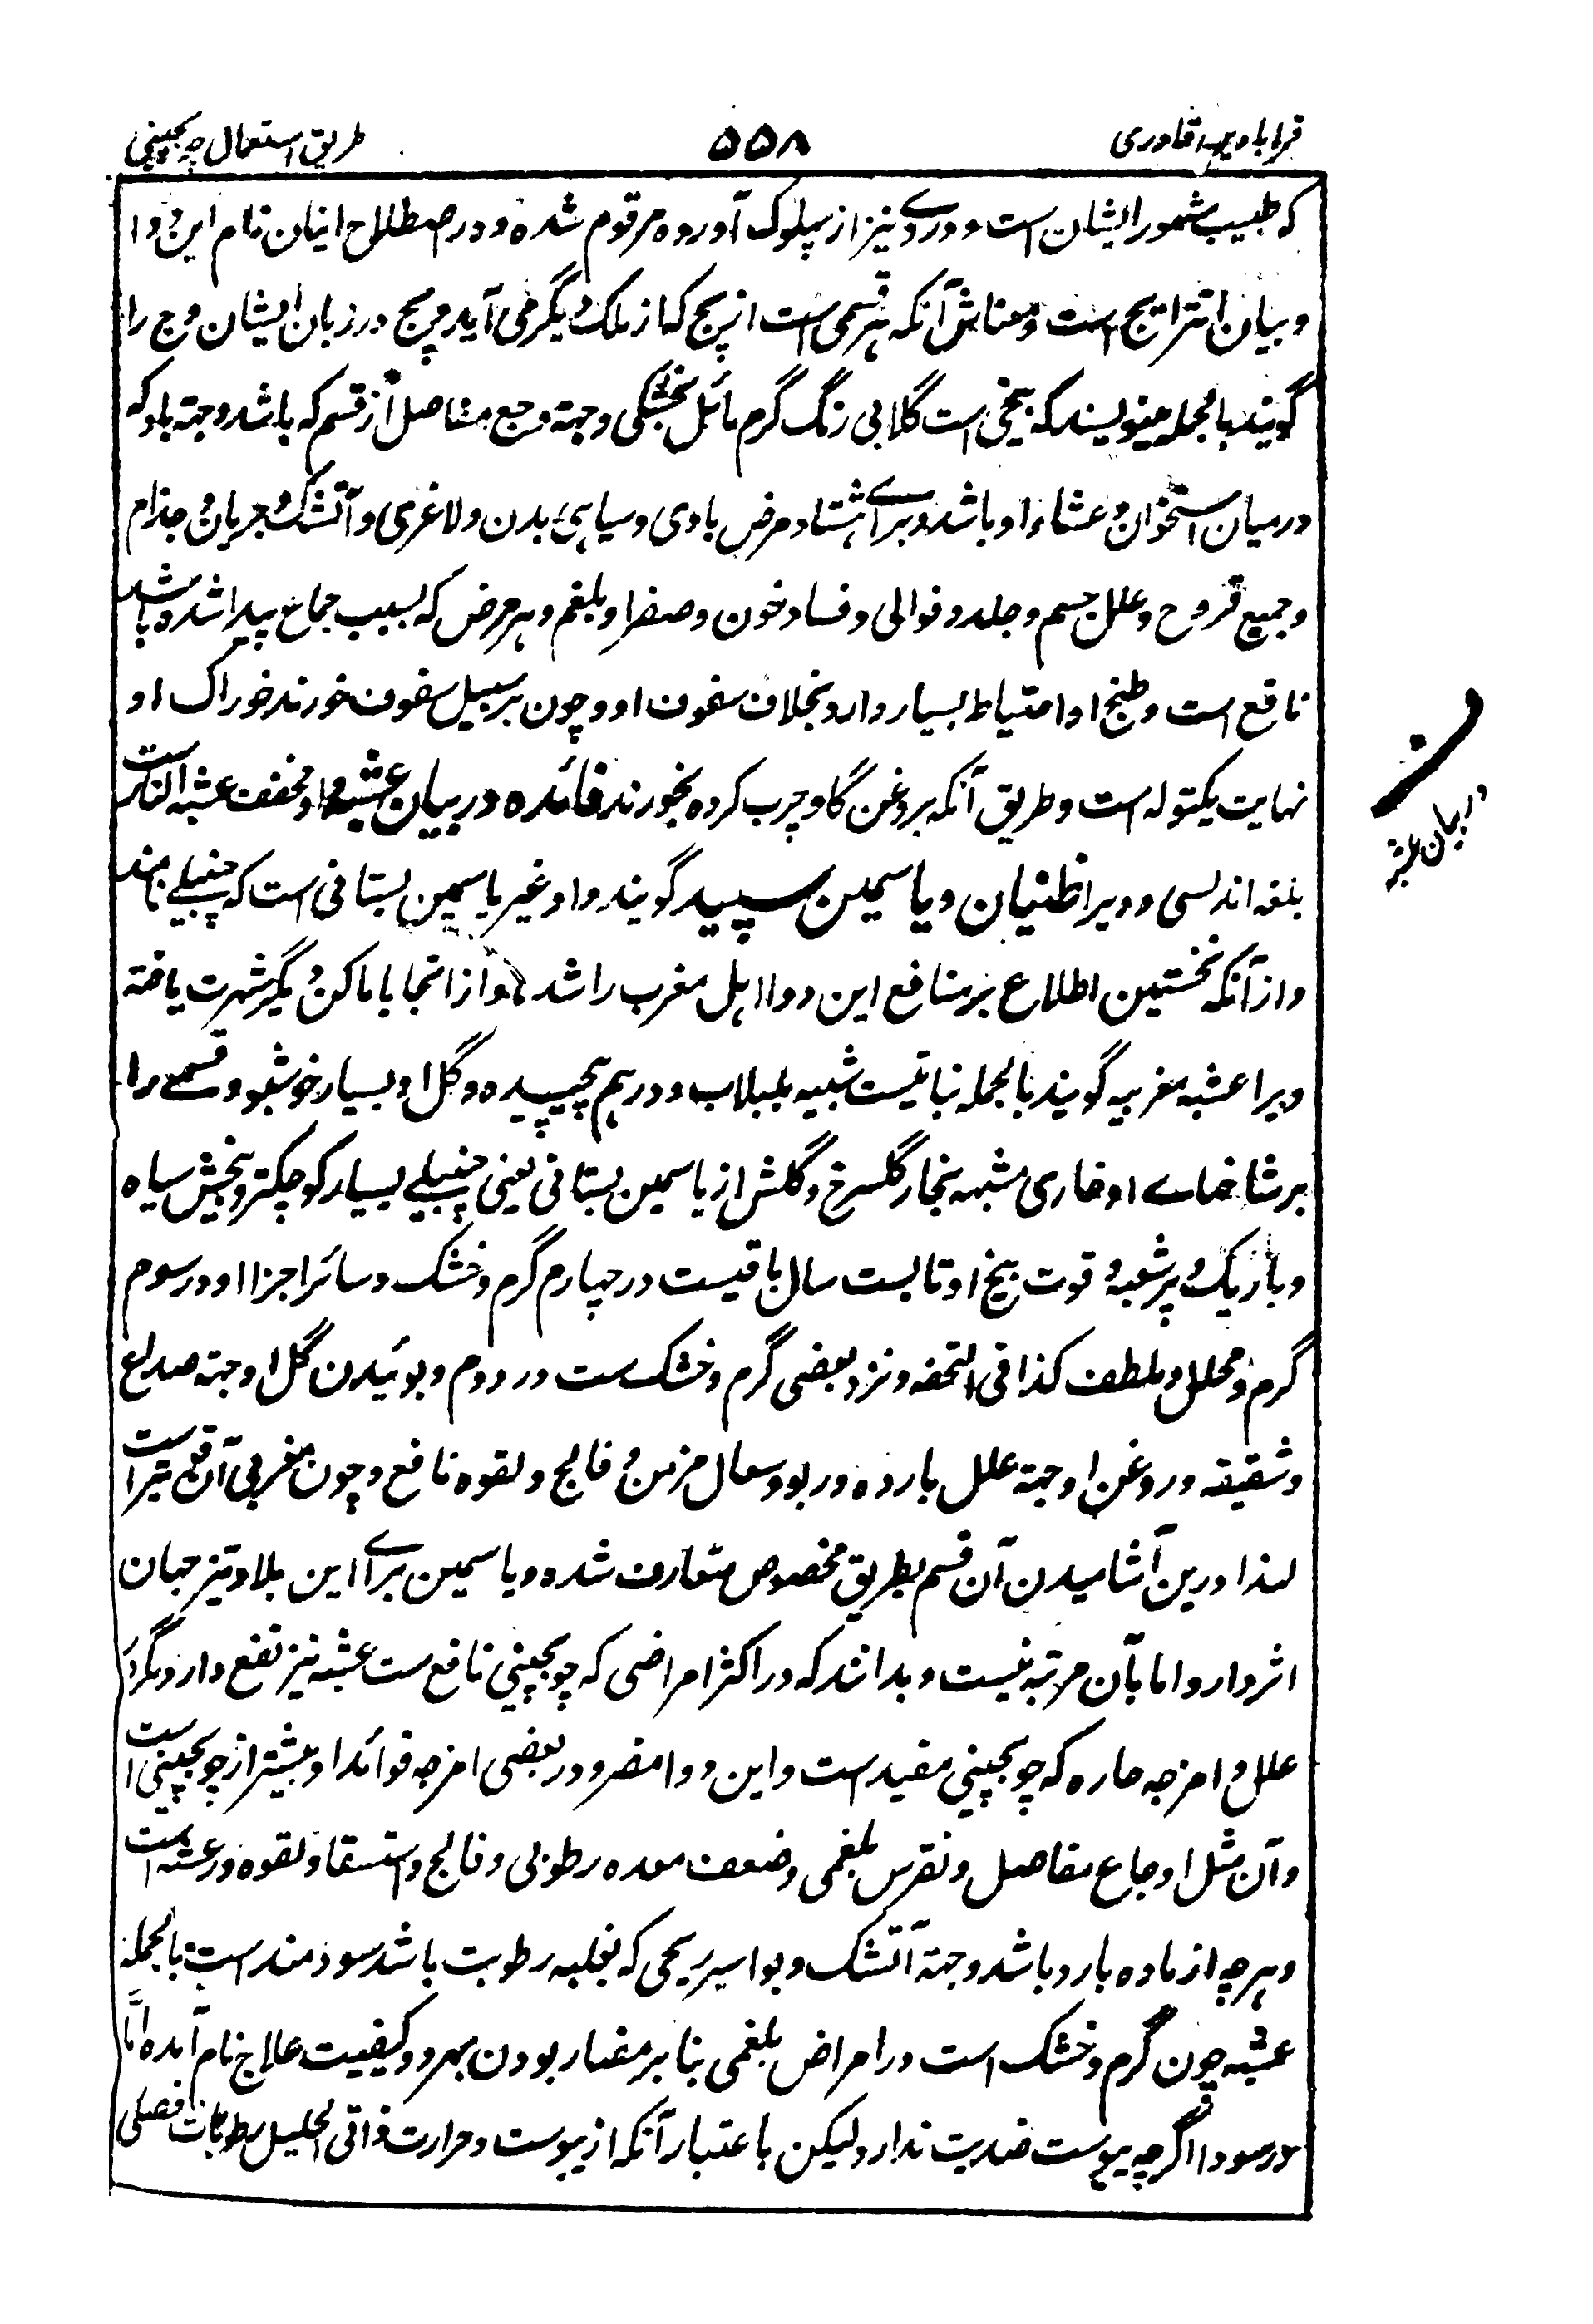 قرابادین قادری
۵۵۸
طریق استعمال چوبچینی
که طبیب مشهور ایشان است و وی نیز از سپلوک آورده مرقوم شده و در اصطلاح اینان نام این دوا
و بیان انترا بیج است و معناش آنکه هر قسمی است از بیج که از ملک دیگر می آید و بیج در زبان ایشان وج را
گویند بالجمله مینویسند که بیخی است گلابی رنگ گرم مائل بخشکی و جهة وجع مفاصل از قسم که باشد و جهة باد که
درمیان استخوان و غشاء او باشد و برای هشتاد مرض بادی و سیاهی بدن و لاغری و آتشک و جریان و جذام
و جمیع قروح و علل جسم و جلد و دوالی و فساد خون و صفرا و بلغم و هر مرض که بسبب جماع پیدا شده باشد
نافع است و طبخ او احتیاط بسیار دارد بخلاف سفوف او و چون بر سبیل سفوف خورند خوراک او
نهایت یکتوله است و طریق آنکه بروغن گاو چرب کرده بخورند فائده در بیان عشبه و او مخفف عشبة النار است
بلغه اندلسی و ویرا ظنیان و یاسمین سپید گویند و او غیر یاسمین بستانی است که چنبیلے نامند
و از آنکه نخستین اطلاع بر منافع این دوا اهل مغرب را شد و از آنجا باماکن دیگر شهرت یافته
ویرا عشبه مغربیه گویند بالجمله نباتیست شبیه بلبلاب و درهم پیچیده و گل او بسیار خوشبو و قسمے را
بر شاخهاے او خاری مشبه بخار گلسرخ و گلش از یاسمین بستانی یعنی چنبیلے بسیار کوچکتر و بیخش سیاه
و باریک و پر شعبه و قوت بیخ او تا بست سال باقیست در چهارم گرم و خشک و سائر اجزا او در سوم
گرم و محلل و ملطف کذا فی التحفه و نزد بعضی گرم و خشک ست در دوم و بوئیدن گل او جهته صداع
و شقیقه و روغن او جهته علل بارده و ربو و سعال مزمن و فالج و لقوه نافع و چون مغربی آن قوی تر است
لهذا درین آشامیدن آن قسم بطریق مخصوص متعارف شده و یاسمین برای این بلاد نیز همان
اثر دارد اما بآن مرتبه نیست و بدانند که در اکثر امراضی که چوبچینی نافع ست عشبه نیز نفع دارد مگر در
علل و امزجه حاره که چوبچینی مفید است و این دوا مضر و در بعضی امزجه فوائد او بیشتر از چوبچینی است
و آن مثل اوجاع مفاصل و نقرس بلغمی و ضعف معده رطوبی و فالج و استسقا و لقوه و رعشه است
و هرچه از ماده بارد باشد و جهة آتشک و بواسیر ریحی که بغلبه رطوبت باشد سودمند است بالجمله
عشبه چون گرم و خشک است در امراض بلغمی بنا بر مضار بودن بهر دو کیفیت علاج تام آمده اما
در سودا اگرچه بیبوست ضدیت ندارد لیکن باعتبار آنکه از یبوست و حرارت ذاتی تحلیل رطوبات فصلی
در بیان عشبه